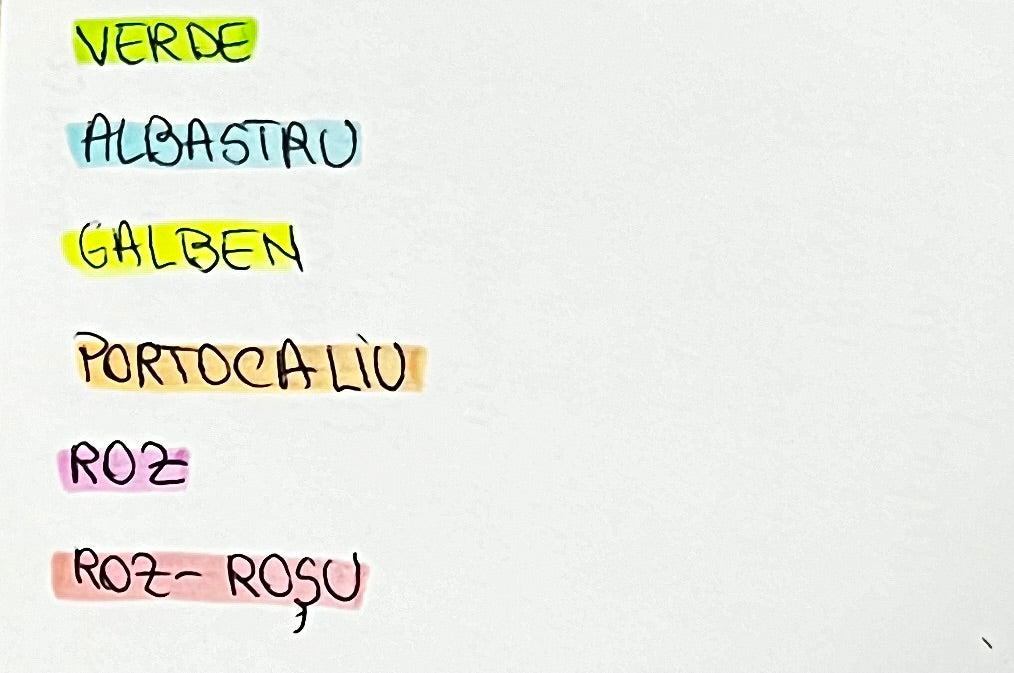 VERDE
ALBASTRU
GALBEN
PORTOCALIU
ROZ
ROZ- ROȘU